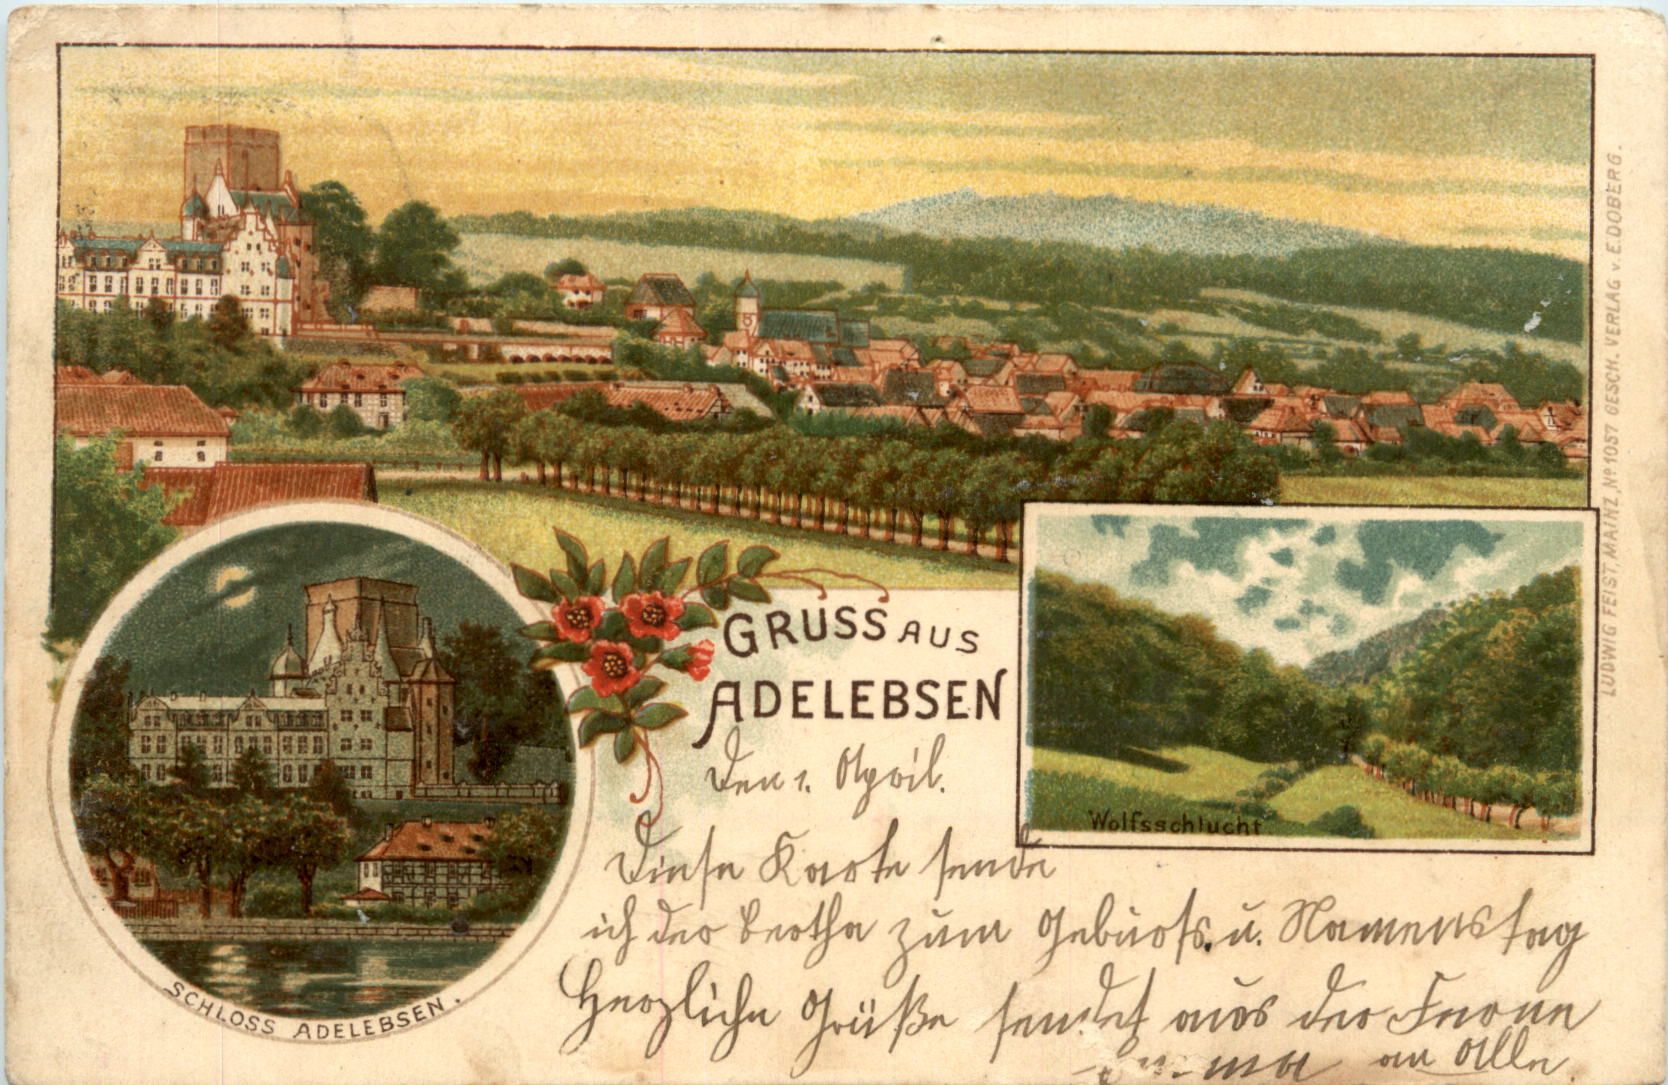 GRUSS AUS
ADELEBSEN
Den 1. April.
Diese Karte sende
ich der Bertha zum Geburts. u. Namenstag
Herzliche Grüße sendet aus der Ferne
an Alle
SCHLOSS ADELEBSEN.
Wolfsschlucht
LUDWIG FEIST, MAINZ, No 1057 GESCH. VERLAG v. E. DOBERG.